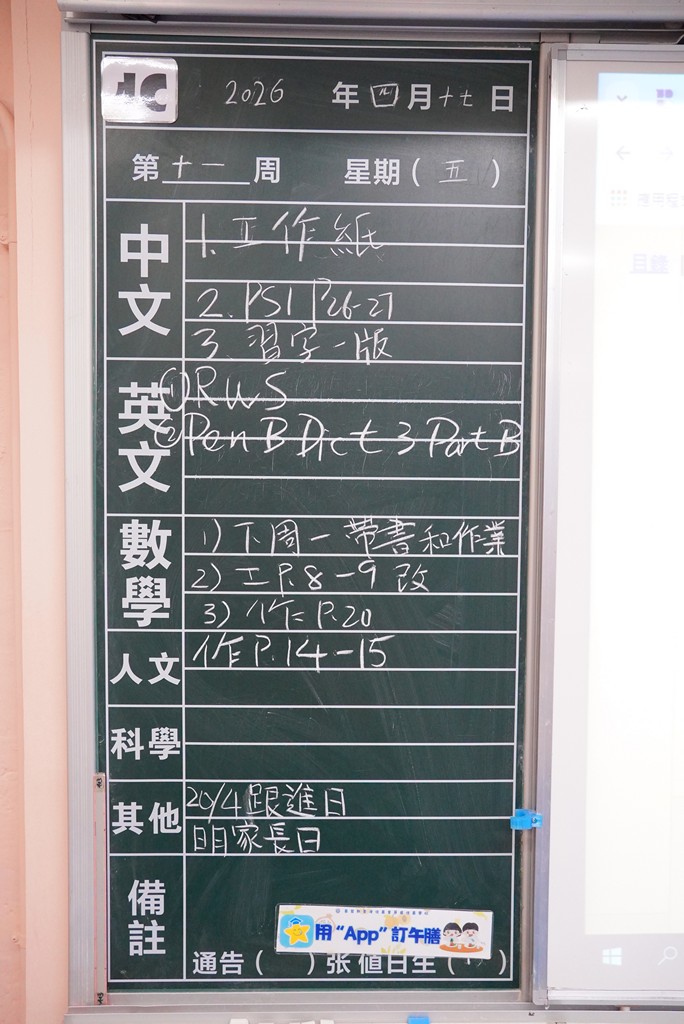 1C
2026 年 四 月 十七 日
第 十一 周 星期 ( 五 )
中文
1. 工作紙
2. PS1 P26-27
3. 習字一版
英文
① RWS
② Pen B Dict 3 Part B
數學
1) 下周一帶書和作業
2) 工 P.8-9 改
3) 作 P.20
人文
作 P.14-15
科學
其他
20/4 跟進日
明家長日
備註
用“App”訂午膳
通告 ( ) 张 值日生 ( )